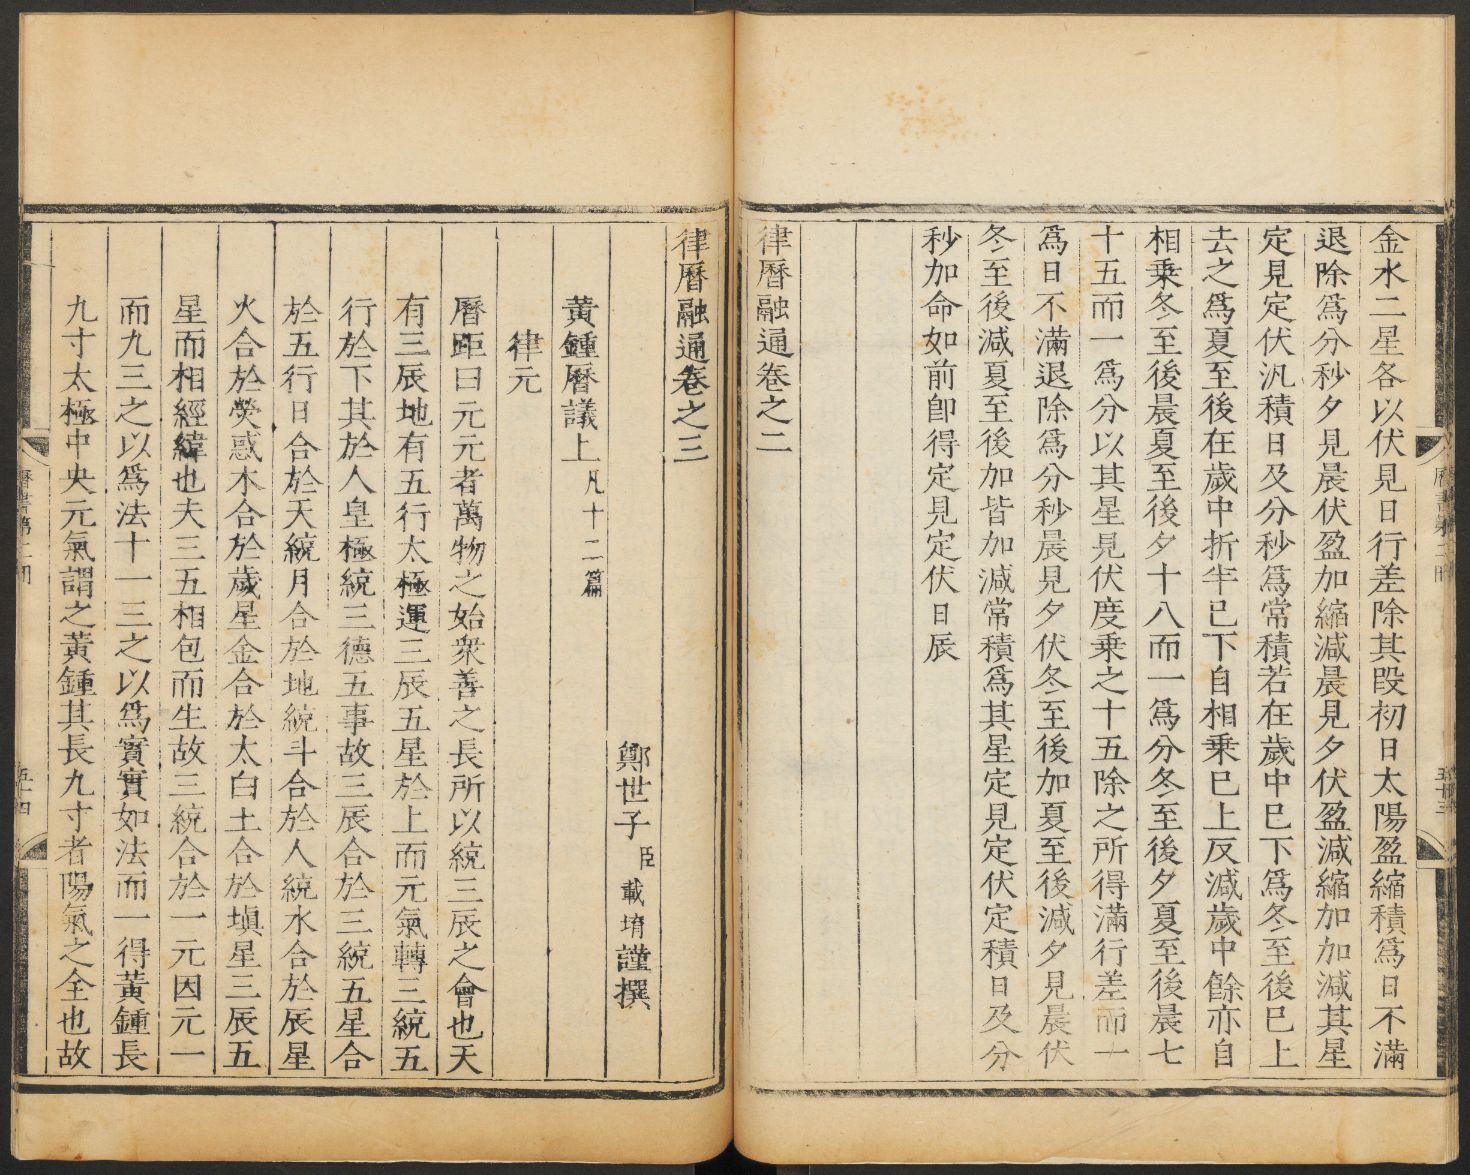 金水二星各以伏見日行差除其段初日太陽盈縮積爲日不滿
退除爲分秒夕見晨伏盈加縮減晨見夕伏盈減縮加加減其星
定見定伏汎積日及分秒爲常積若在歲中已下爲冬至後已上
去之爲夏至後在歲中折半已下自相乘已上反減歲中餘亦自
相乘冬至後晨夏至後夕十八而一爲分冬至後夕夏至後晨七
十五而一爲分以其星見伏度乘之十五除之所得滿行差而一
爲日不滿退除爲分秒晨見夕伏冬至後加夏至後減夕見晨伏
冬至後減夏至後加皆加減常積爲其星定見定伏定積日及分
秒加命如前卽得定見定伏日辰
律曆融通卷之二
五十三
律曆融通卷之三
鄭世子臣載堉謹撰
黃鍾曆議上凡十二篇
律元
曆距曰元元者萬物之始衆善之長所以統三辰之會也天
有三辰地有五行太極運三辰五星於上而元氣轉三統五
行於下其於人皇極統三德五事故三辰合於三統五星合
於五行日合於天統月合於地統斗合於人統水合於辰星
火合於熒惑木合於歲星金合於太白土合於塡星三辰五
星而相經緯也夫三五相包而生故三統合於一元因元一
而九三之以爲法十一三之以爲實實如法而一得黃鍾長
九寸太極中央元氣謂之黃鍾其長九寸者陽氣之全也故
曆書第二冊
五十四